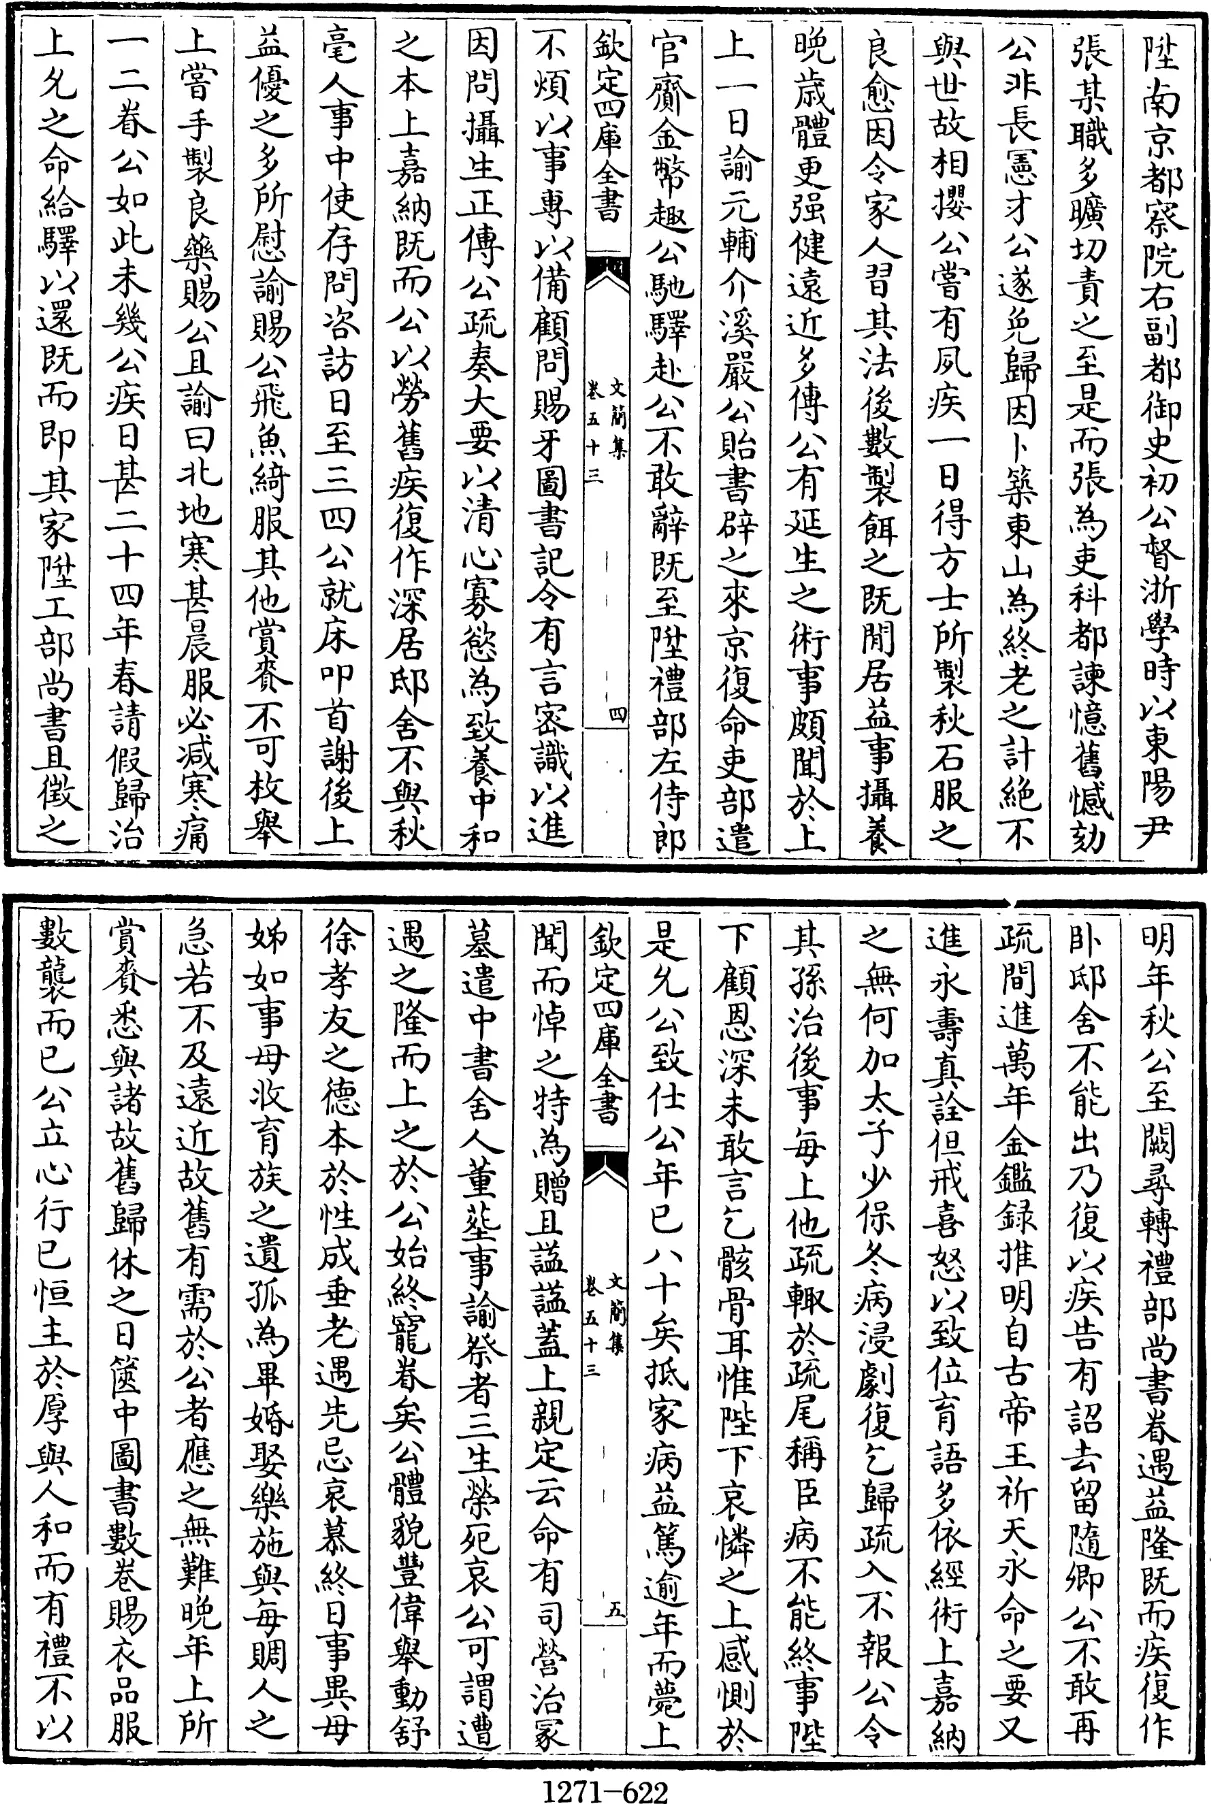 陞南京都察院右副都御史初公督浙學時以東陽尹
張某職多曠切責之至是而張為吏科都諫憶舊憾劾
公非長憲才公遂免歸因卜築東山為終老之計絶不
與世故相攖公嘗有夙疾一日得方士所製秋石服之
良愈因令家人習其法後數製餌之既閒居益事攝養
晩歳體更强健遠近多傳公有延生之術事頗聞於上
上一日諭元輔介溪嚴公貽書辟之來京復命吏部遣
官齎金幣趣公馳驛赴公不敢辭既至陞禮部左侍郎
欽定四庫全書
文簡集
卷五十三
四
不煩以事專以備顧問賜牙圖書記令有言密識以進
因問攝生正傳公疏奏大要以清心寡慾為致養中和
之本上嘉納既而公以勞舊疾復作深居邸舍不與秋
毫人事中使存問咨訪日至三四公就床叩首謝後上
益優之多所慰諭賜公飛魚綺服其他賞賚不可枚舉
上嘗手製良藥賜公且諭曰北地寒甚晨服必减寒痛
一二眷公如此未幾公疾日甚二十四年春請假歸治
上允之命給驛以還既而即其家陞工部尚書且徵之
明年秋公至闕尋轉禮部尚書眷遇益隆既而疾復作
卧邸舍不能出乃復以疾告有詔去留隨卿公不敢再
疏間進萬年金鑑録推明自古帝王祈天永命之要又
進永壽真詮但戒喜怒以致位育語多依經術上嘉納
之無何加太子少保冬病浸劇復乞歸疏入不報公令
其孫治後事每上他疏輙於疏尾稱臣病不能終事陛
下顧恩深未敢言乞骸骨耳惟陛下哀憐之上感惻於
是允公致仕公年已八十矣抵家病益篤逾年而薨上
欽定四庫全書
文簡集
卷五十三
五
聞而悼之特為贈且諡諡蓋上親定云命有司營治冡
墓遣中書舍人董塟事諭祭者三生榮死哀公可謂遭
遇之隆而上之於公始終寵眷矣公體貌豐偉舉動舒
徐孝友之德本於性成垂老遇先忌哀慕終日事異母
姊如事母收育族之遺孤為畢婚娶樂施與每賙人之
急若不及遠近故舊有需於公者應之無難晩年上所
賞賚悉與諸故舊歸休之日篋中圖書數卷賜衣品服
數襲而已公立心行已恒主於厚與人和而有禮不以
1271-622